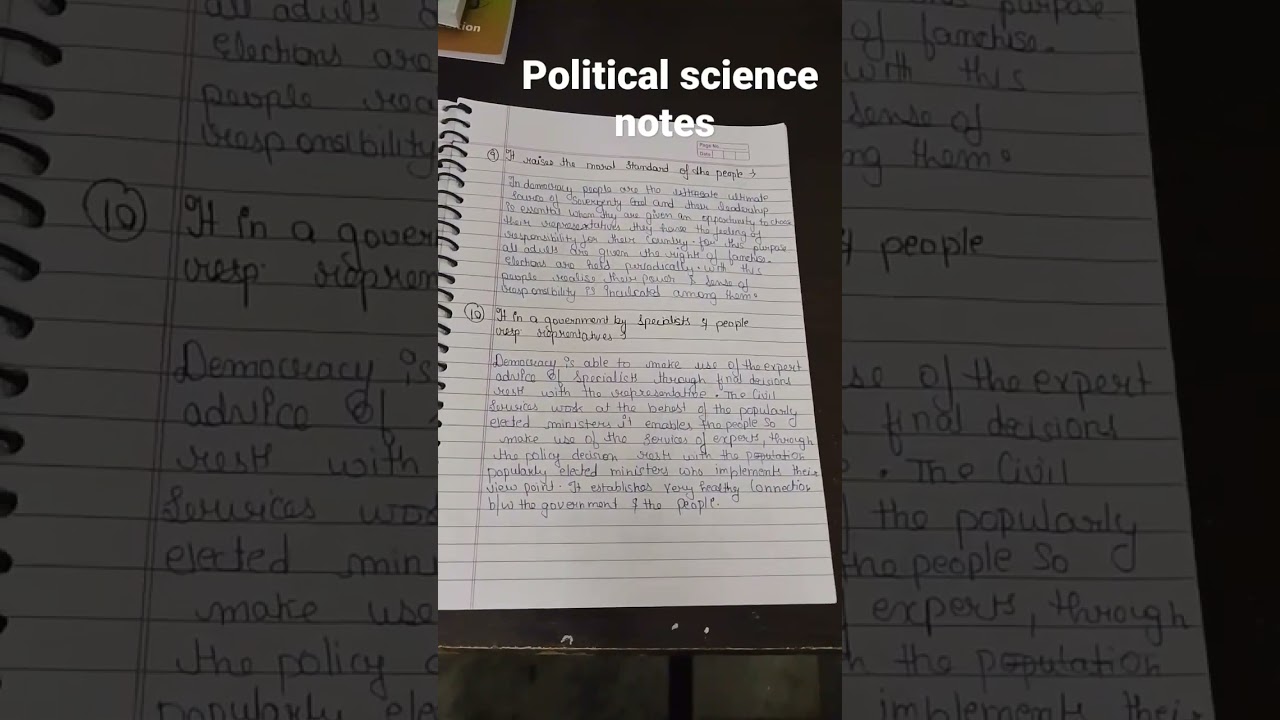 Political science
notes
Page No.
Date
9 It raises the moral standard of the people →
In democracy people are the ultimate ultimate
Source of Sovergenty God and their leadership
is essential when they are given an opportunity to choose
their representatives they have the feeling of
responsibility for their country. for this purpose
all adults are given the right of franchise.
elections are held periodically. with this
people realise their power & sense of
responsibility is inculcated among them.
10 It in a government by specialists & people
resp reprentatives →
Democracy is able to make use of the expert
advice of specialists through final decisions
rests with the representative. The Civil
Services work at the behest of the popularly
elected ministers it enables the people So
make use of the services of experts, through
the policy decision rests with the population
popularly elected ministers who implements their
view point. It establishes very healthy Connection
b/w the government & the people.